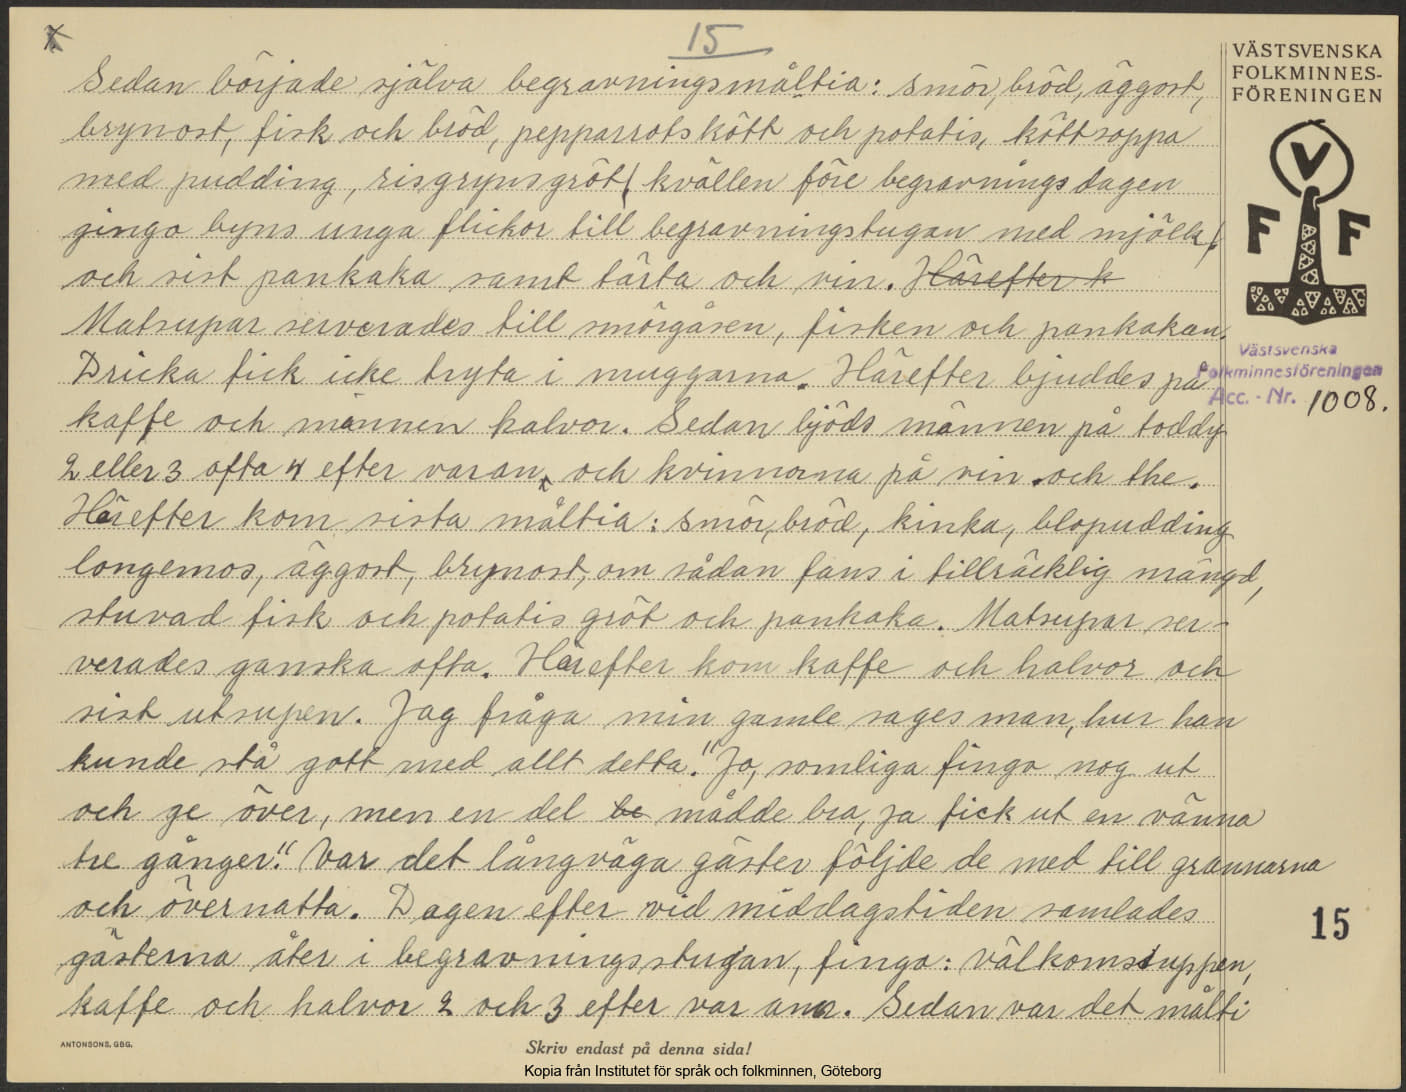 15
VÄSTSVENSKA
FOLKMINNES-
FÖRENINGEN
V
F F
Västsvenska
Folkminnesföreningen
Acc. - Nr. 1008.
Sedan började själva begravningsmåltia: smör, bröd, äggost,
brynost, fisk och bröd, pepparrotskött och potatis, köttsoppa
med pudding, risgrynsgröt ( kvällen före begravningsdagen
gingo byns unga flickor till begravningstugan med mjölk).
och sist pankaka samt tårta och vin. Härefter k
Matsupar serverades till smörgåsen, fisken och pankakan.
Dricka fick icke tryta i muggarna. Härefter bjuddes på
kaffe och männen halvor. Sedan bjöds männen på toddy
2 eller 3 ofta 4 efter varan, och kvinnorna på vin och the.
Härefter kom sista måltia: smör, bröd, kinka, blopudding
longemos, äggost, brynost, om sådan fans i tillräcklig mängd,
stuvad fisk och potatis gröt och pankaka. Matsupar ser-
verades ganska ofta. Härefter kom kaffe och halvor och
sist utsupen. Jag fråga min gamle sagesman, hur han
kunde stå gott med allt detta. "Jo, somliga fingo nog ut
och ge över, men en del be mådde bra, ja fick ut en vänna
tre gånger." Var det långväga gäster följde de met till grannarna
och övernatta. Dagen efter vid middagstiden samlades
gästerna åter i begravningsstugan, fingo: välkomstsuppen,
kaffe och halvor 2 och 3 efter var ana. Sedan var det målti
15
ANTONSONS, GBG.
Skriv endast på denna sida!
Kopia från Institutet för språk och folkminnen, Göteborg